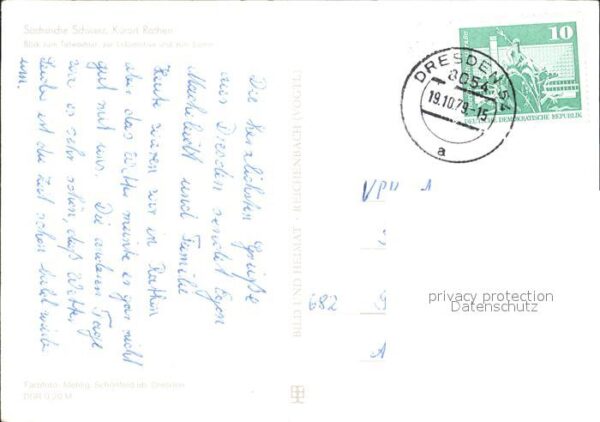 Sächsische Schweiz, Kurort Rathen
Blick zum Talwächter, zur Lokomotive und zum Gamrig
Die herzlichsten Grüße
aus Dresden sendet Egon
und Familie
Heute waren wir in Rathen
aber das Wetter meinte es gar nicht
gut mit uns. Die anderen Tage
war es sehr schön, daß Wetter,
Leider ist die Zeit schon bald wieder
um.
BILD UND HEIMAT · REICHENBACH (VOGTL)
Farbfoto: Mehlig, Schönfeld üb. Dresden
DDR 0,20 M
DRESDEN
8054
19.10.79-15
a
10
DEUTSCHE DEMOKRATISCHE REPUBLIK
1
682
A
privacy protection
Datenschutz